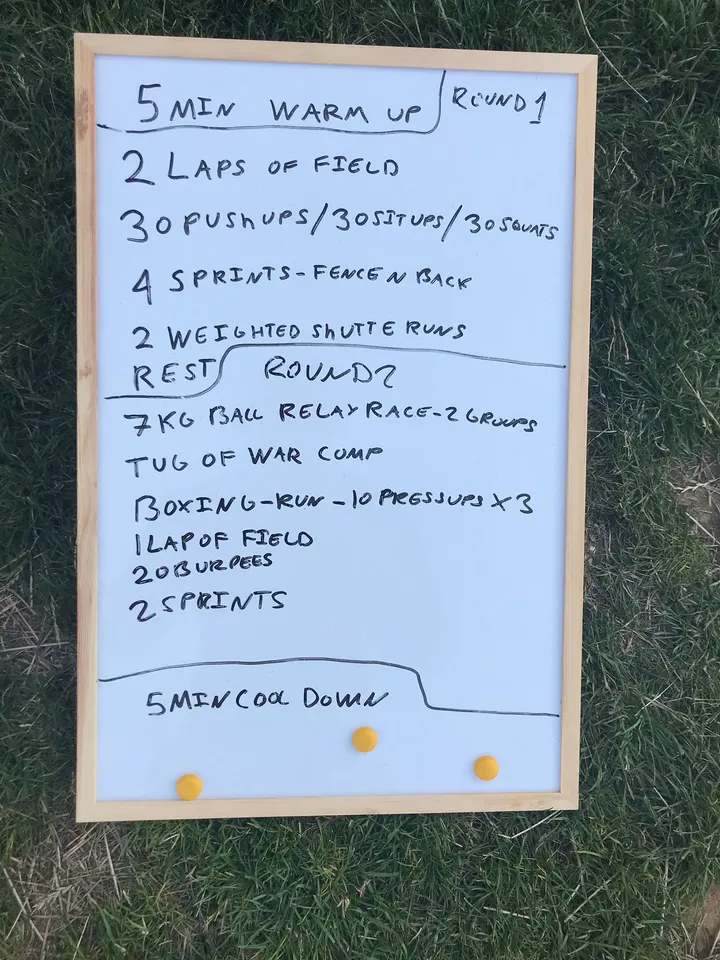 5 MIN WARM UP
ROUND 1
2 LAPS OF FIELD
30 PUShUPS/30 SITUPS/30 SQUATS
4 SPRINTS-FENCE N BACK
2 WEIGHTED ShUTTE RUNS
REST
ROUND 2
7KG BALL RELAY RACE-2 GROUPS
TUG OF WAR COMP
BOXING-RUN-10 PRESSUPS X 3
1 LAP OF FIELD
20 BURPEES
2 SPRINTS
5 MIN COOL DOWN